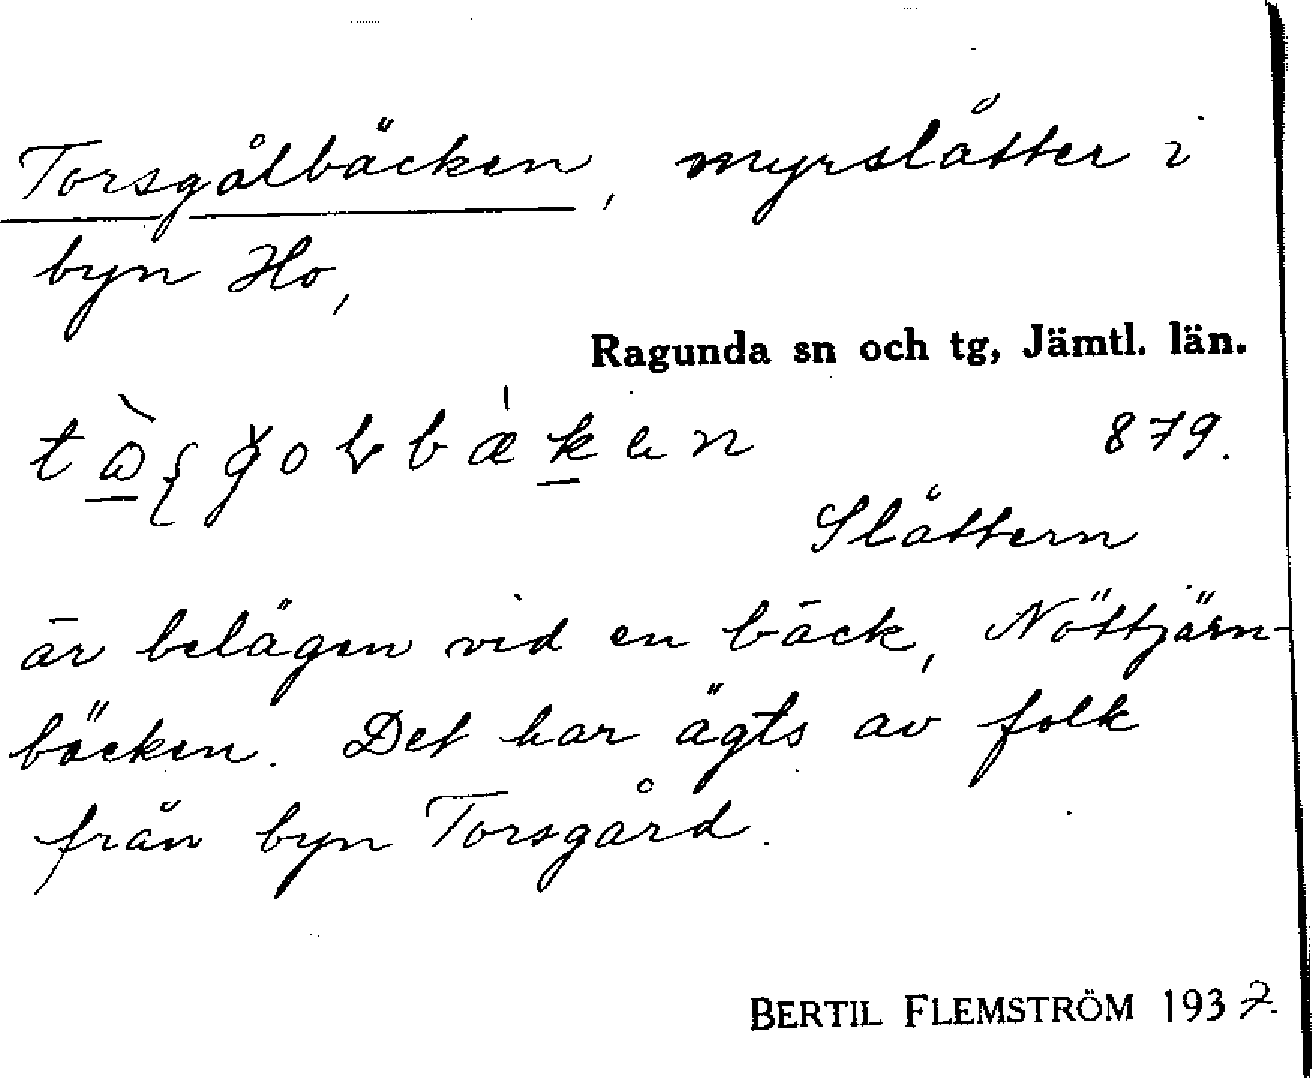 Torsgålbäcken, myrslåtter i
byn Ho,
Ragunda sn och tg, Jämtl. län.
879.
Slåttern
är belägen vid en bäck, Nöttjärn-
bäcken. Det har ägts av folk
från byn Torsgård.
BERTIL FLEMSTRÖM 1937